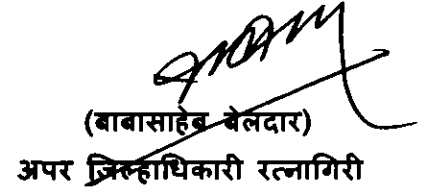 (बाबासाहेब बेलदार)
अपर जिल्हाधिकारी रत्नागिरी